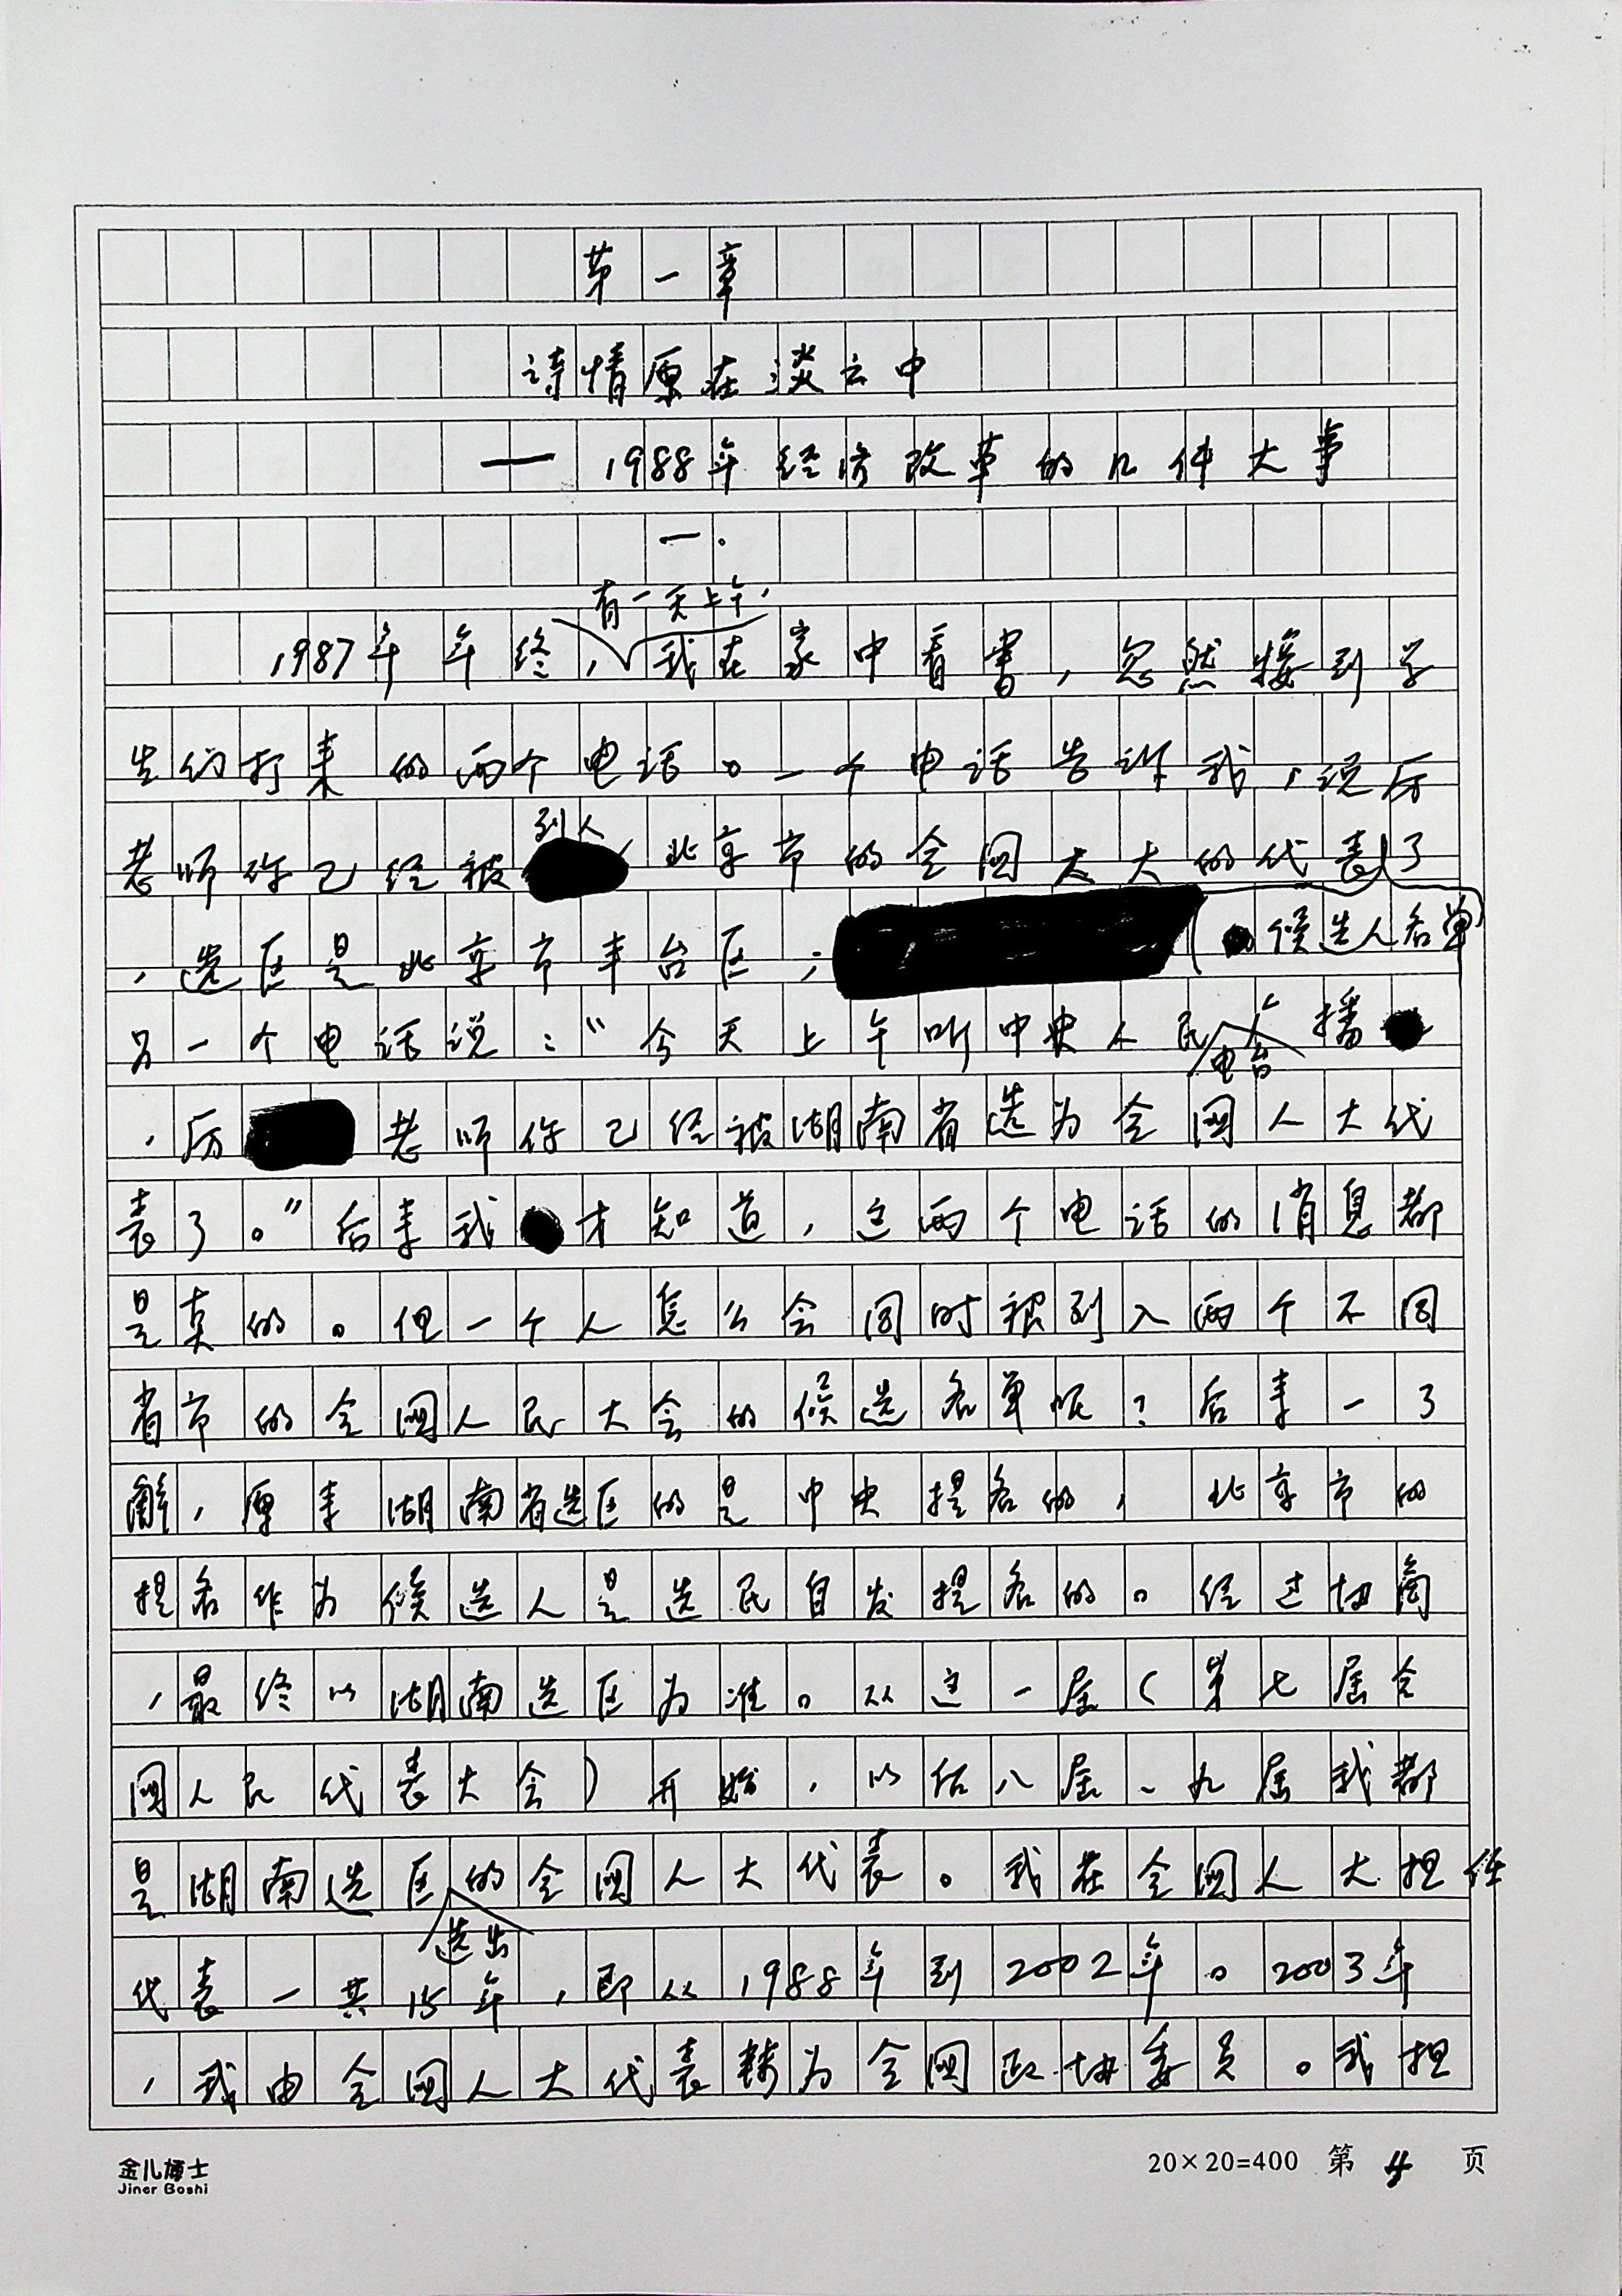 第一章
诗情原在淡云中
——1988年经济改革的几件大事
一.
有一天上午,
1987年年终,我在家中看书,忽然接到学
生们打来的两个电话。一个电话告诉我,说厉
列入
老师你已经被北京市的全国大大的代表了
候选人名单
,选区是北京市丰台区;
另一个电话说:“今天上午听中央人民广播
电台
,厉老师你已经被湖南省选为全国人大代
表了。”后来我才知道,这两个电话的消息都
是真的。但一个人怎么会同时被列入两个不同
省市的全国人民大会的候选名单呢?后来一了
解,原来湖南省选区的是中央提名的,北京市的
提名作为候选人是选民自发提名的。经过协商
,最终以湖南选区为准。从这一届(第七届全
国人民代表大会)开始,以后八届、九届我都
是湖南选区的全国人大代表。我在全国人大担任
选出
代表一共15年,即从1988年到2002年。2003年
,我由全国人大代表转为全国政协委员。我担
金儿博士
Jiner Boshi
20×20=400 第 4 页